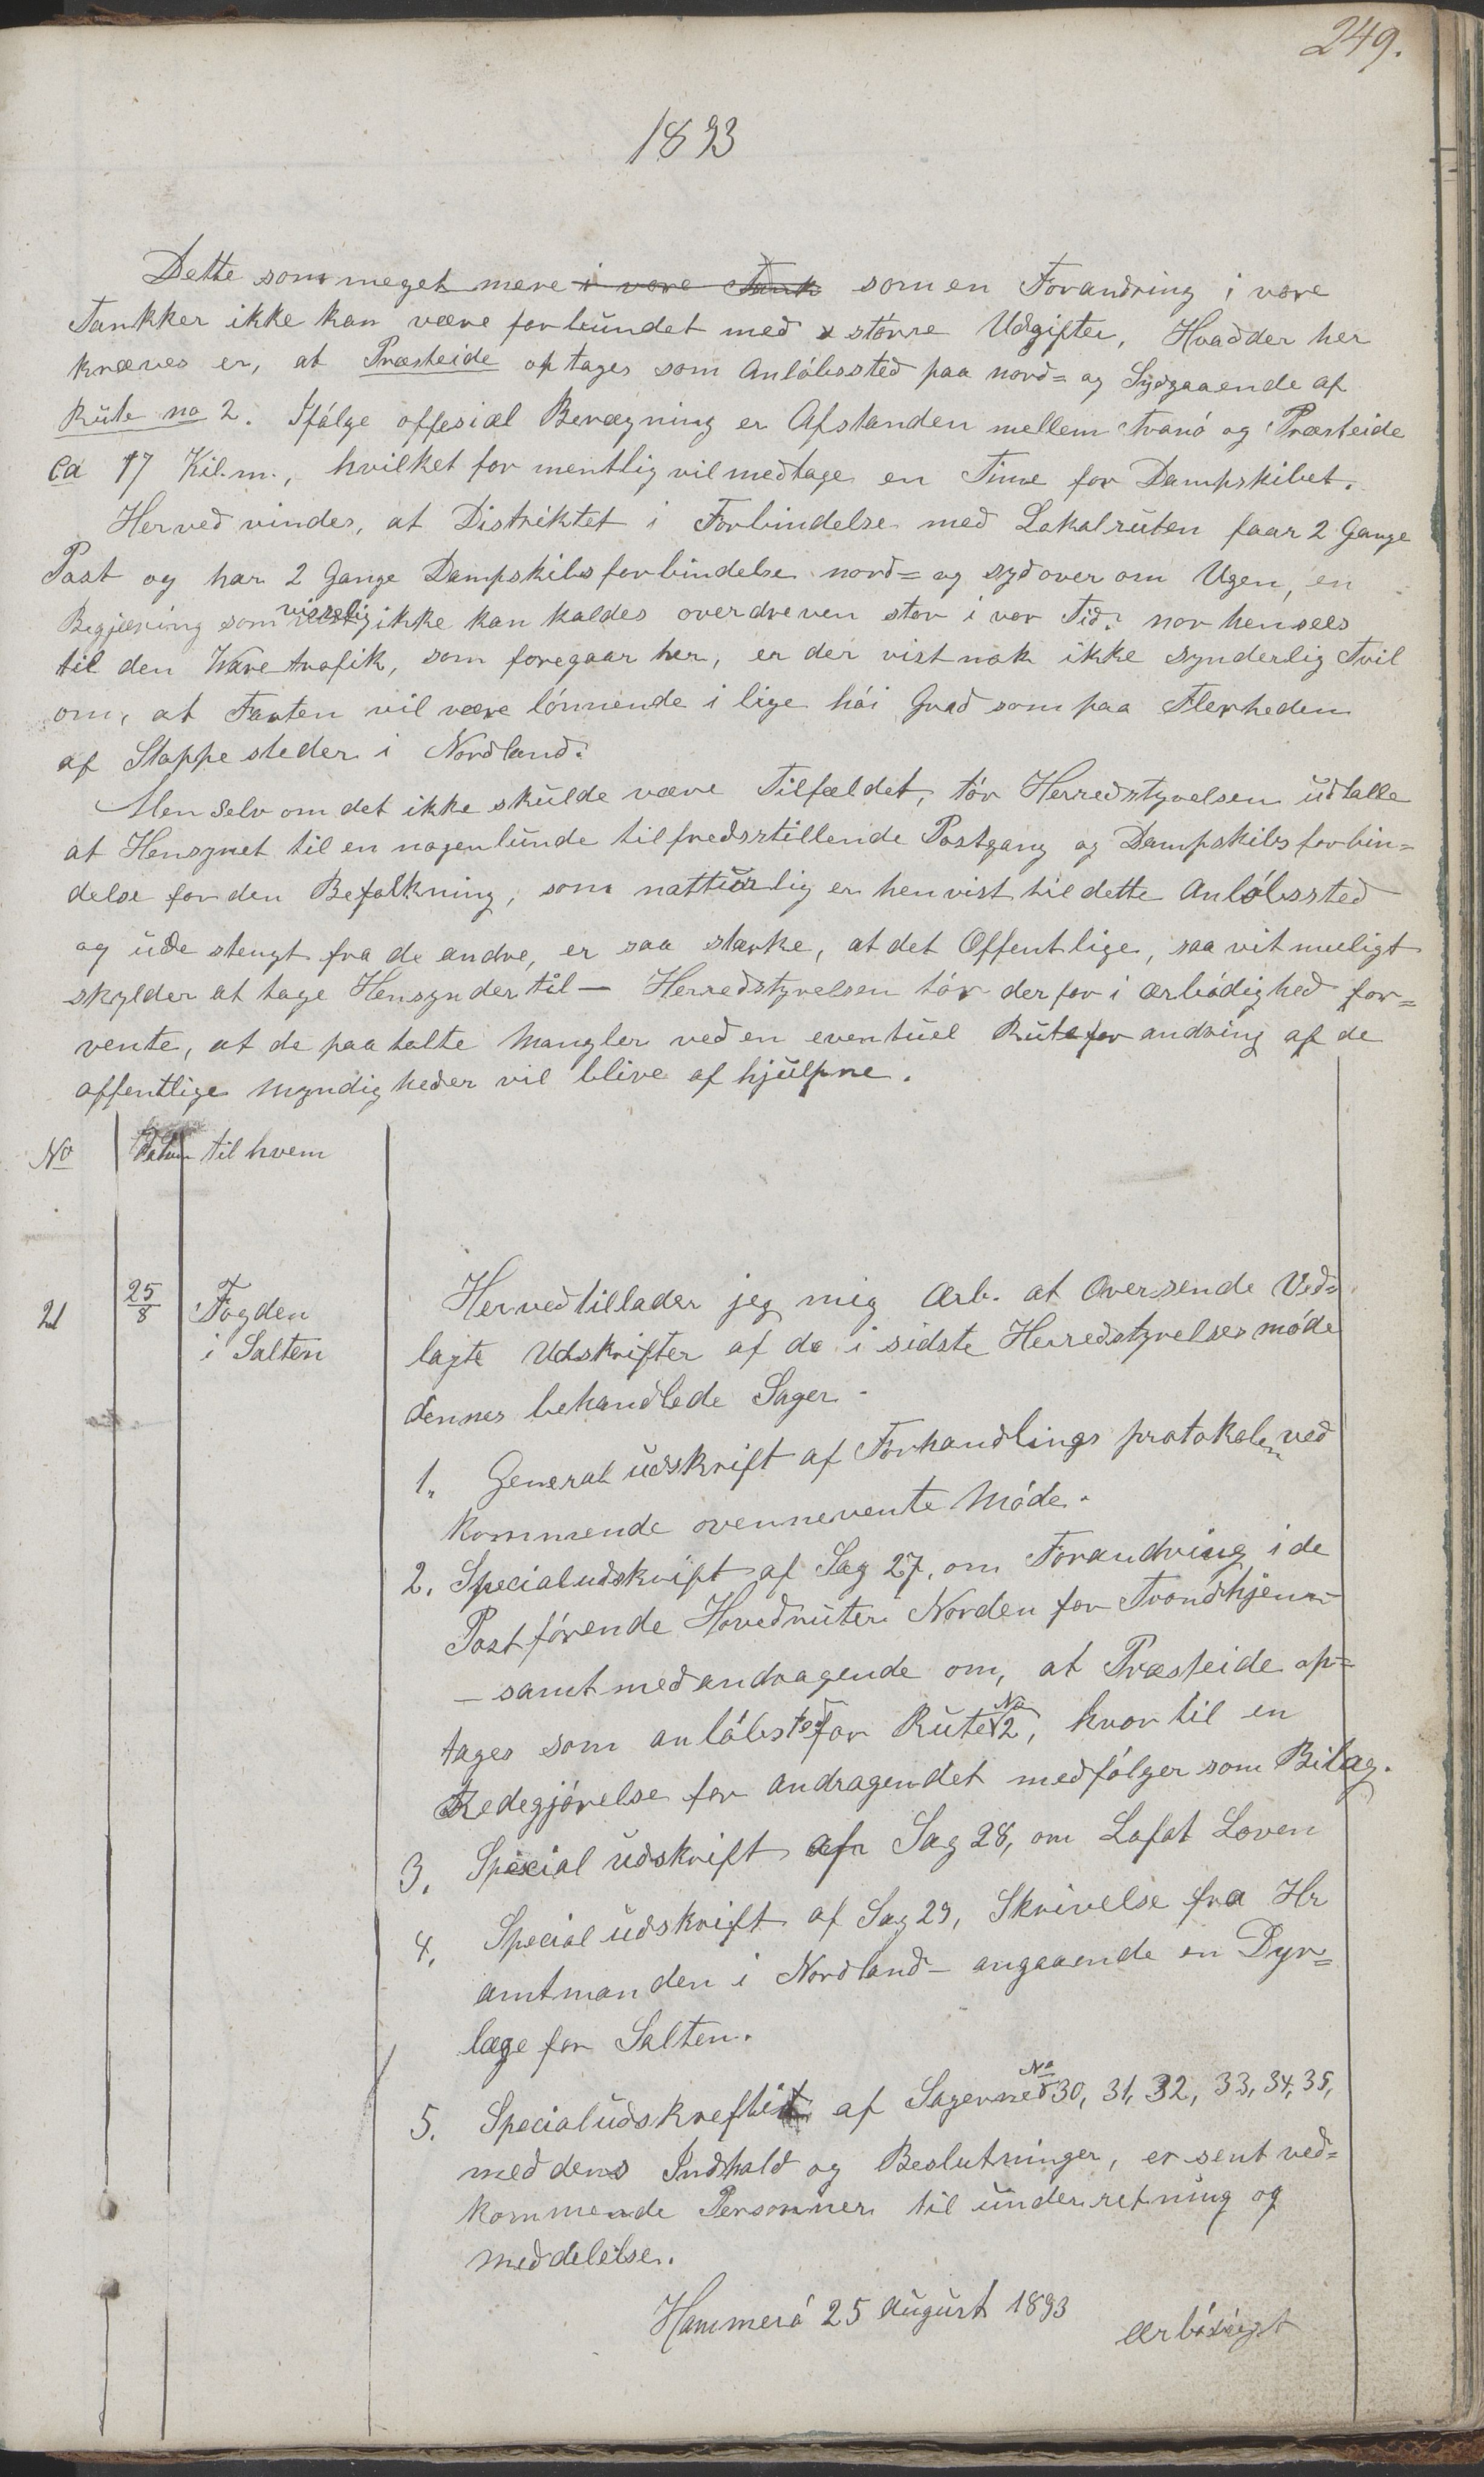 249.
1893
Dette som meget mere i vore Tank som en Forandring i vore
Tankker ikke kan være forbundet med större Udgifter, Hvad der her
kræves er, at Præsteide optages som Anlöbssted paa nord= og Sydgaaende af
Rute no 2. Ifölge offesiæl Beregning er Afstanden mellem Tranö og Præsteide
Ca 17 Kil.m., hvilket for mentlig vil medtage en Time for Dampskibet.
Herved vindes, at Distriktet i Forbindelse med Lokalruten faar 2 Gange
Post og har 2 Gange Dampskibsforbindelse nord= og sydover om Ugen, en
Begjæring som visselig ikke kan kaldes overdreven stor i vor Tid. nor hensees
til den Waretrafik, som foregaar her, er der vist nok ikke synderlig Tvil
om, at Farten vil være lönnende i lige höi Grad som paa Flerheden
af Stoppesteder i Nordland.
Men Selv om det ikke skulde være Tilfældet, tör Herredstyrelsen udtalle
at Hensynet til en nogenlunde tilfredsstillende Postgang og Dampskibsforbin=
delse for den Befolkning, som natturlig er henvist til dette Anlöbssted
og ude stengt fra de andre, er saa stærke, at det Offentlige, saa vit muligt
skylder at tage Hensyn dertil — Herredstyrelsen tör derfor i ærbödighed for=
vente, at de paatalte Mangler ved en eventuel Ruteforandring af de
offentlige Myndigheder vil blive afhjulpne.
No Datum til hvem
21 25/8 Fogden
i Salten
Herved tillader jeg mig Ærb. at Oversende Ved=
lagte Udskrifter af de i sidste Herredstyrelsesmöde
dennes behandlede Sager.
1. General udskrift af Forhandlings protokolen ved
kommende ovennevente Möde.
2. Specialudskrift af Sag 27, om Forandring i de
Postförende Hovedruter Norden for Trondhjem
— samt med andragende om, at Præsteide op=
tages som anlöbsted for Rute No 2, hvortil en
Redegjörelse for andragendet medfölger som Bilag.
3. Special udskrift af Sag 28, om Lofot Loven
4. Special udskrift af Sag 29, Skrivelse fra Hr
amtmanden i Nordland — angaaende en Dyr=
læge for Salten.
5. Specialudskrefter af Sagerne No 30, 31, 32, 33, 34, 35,
med dens Indhold og Beslutninger, er sent ved=
kommende Personner til underretning og
meddelelse.
Hammerö 25 August 1893
Ærbödigst